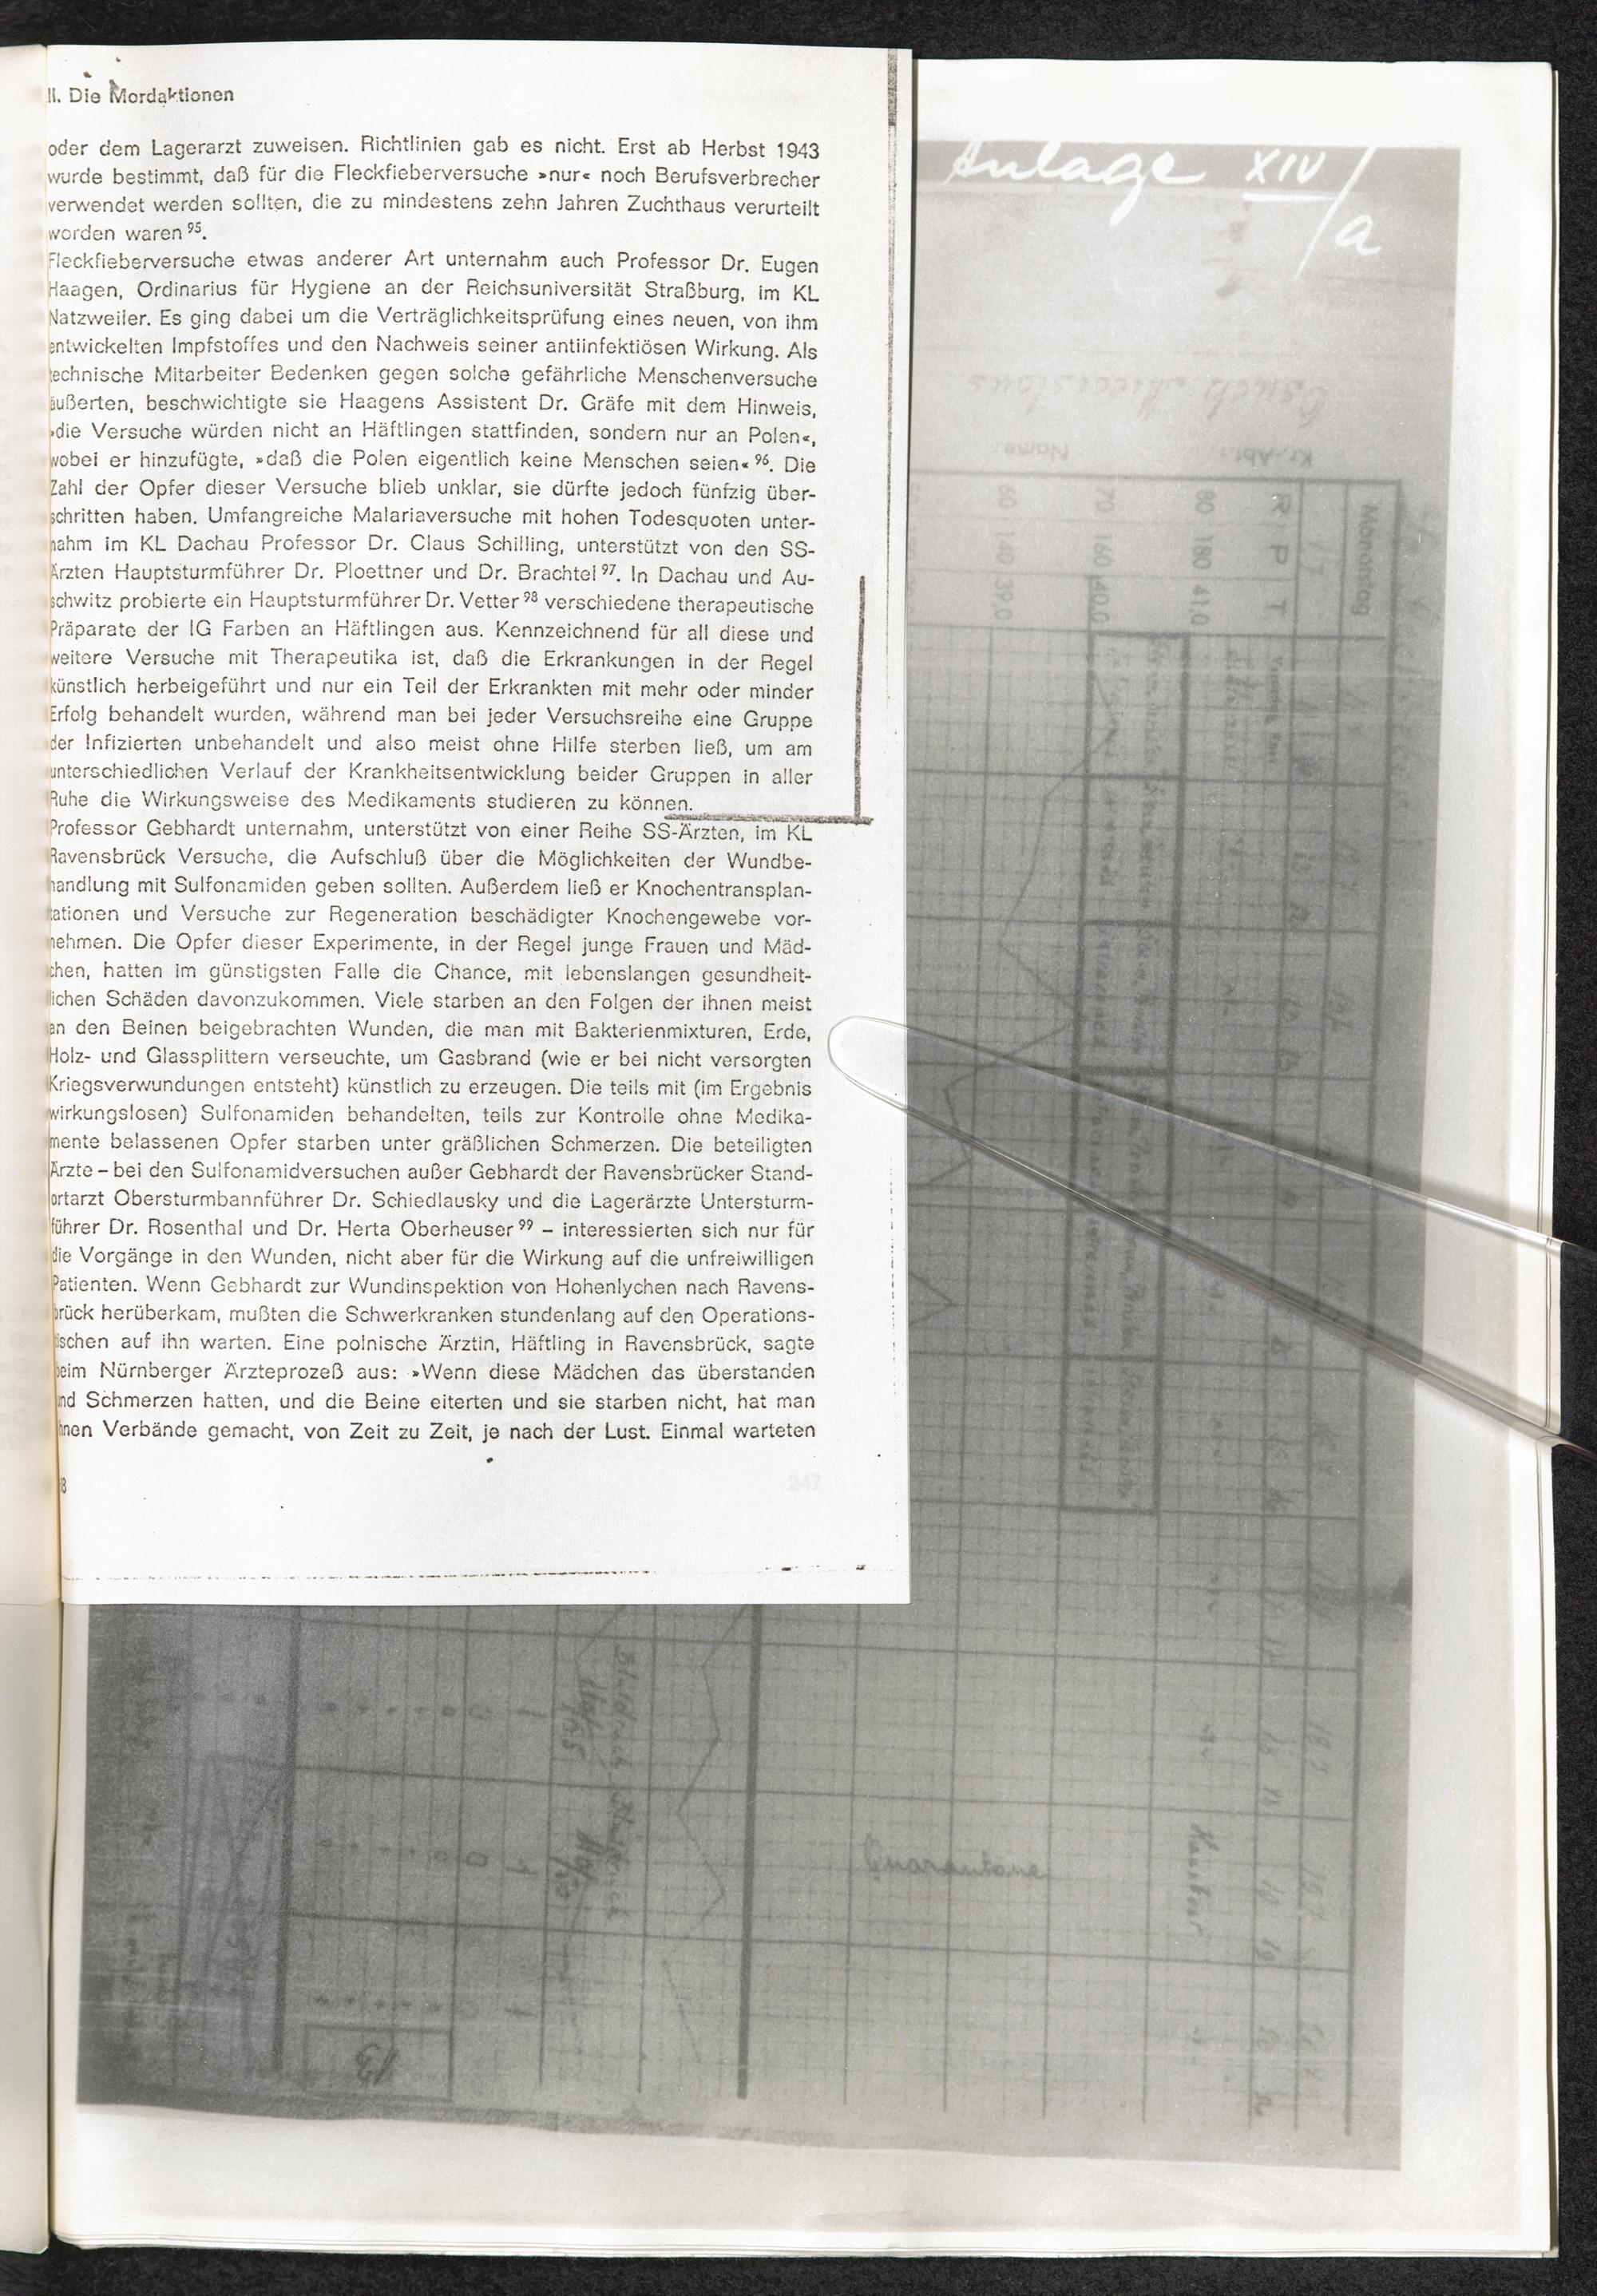 II. Die Mordaktionen
oder dem Lagerarzt zuweisen. Richtlinien gab es nicht. Erst ab Herbst 1943
wurde bestimmt, daß für die Fleckfieberversuche »nur« noch Berufsverbrecher
verwendet werden sollten, die zu mindestens zehn Jahren Zuchthaus verurteilt
worden waren 95.
Fleckfieberversuche etwas anderer Art unternahm auch Professor Dr. Eugen
Haagen, Ordinarius für Hygiene an der Reichsuniversität Straßburg, im KL
Natzweiler. Es ging dabei um die Verträglichkeitsprüfung eines neuen, von ihm
entwickelten Impfstoffes und den Nachweis seiner antiinfektiösen Wirkung. Als
technische Mitarbeiter Bedenken gegen solche gefährliche Menschenversuche
äußerten, beschwichtigte sie Haagens Assistent Dr. Gräfe mit dem Hinweis,
»die Versuche würden nicht an Häftlingen stattfinden, sondern nur an Polen«,
wobei er hinzufügte, »daß die Polen eigentlich keine Menschen seien« 96. Die
Zahl der Opfer dieser Versuche blieb unklar, sie dürfte jedoch fünfzig über-
schritten haben. Umfangreiche Malariaversuche mit hohen Todesquoten unter-
nahm im KL Dachau Professor Dr. Claus Schilling, unterstützt von den SS-
Ärzten Hauptsturmführer Dr. Ploettner und Dr. Brachtel 97. In Dachau und Au-
schwitz probierte ein Hauptsturmführer Dr. Vetter 98 verschiedene therapeutische
Präparate der IG Farben an Häftlingen aus. Kennzeichnend für all diese und
weitere Versuche mit Therapeutika ist, daß die Erkrankungen in der Regel
künstlich herbeigeführt und nur ein Teil der Erkrankten mit mehr oder minder
Erfolg behandelt wurden, während man bei jeder Versuchsreihe eine Gruppe
der Infizierten unbehandelt und also meist ohne Hilfe sterben ließ, um am
unterschiedlichen Verlauf der Krankheitsentwicklung beider Gruppen in aller
Ruhe die Wirkungsweise des Medikaments studieren zu können.
Professor Gebhardt unternahm, unterstützt von einer Reihe SS-Ärzten, im KL
Ravensbrück Versuche, die Aufschluß über die Möglichkeiten der Wundbe-
handlung mit Sulfonamiden geben sollten. Außerdem ließ er Knochentransplan-
tationen und Versuche zur Regeneration beschädigter Knochengewebe vor-
nehmen. Die Opfer dieser Experimente, in der Regel junge Frauen und Mäd-
chen, hatten im günstigsten Falle die Chance, mit lebenslangen gesundheit-
lichen Schäden davonzukommen. Viele starben an den Folgen der ihnen meist
an den Beinen beigebrachten Wunden, die man mit Bakterienmixturen, Erde,
Holz- und Glassplittern verseuchte, um Gasbrand (wie er bei nicht versorgten
Kriegsverwundungen entsteht) künstlich zu erzeugen. Die teils mit (im Ergebnis
wirkungslosen) Sulfonamiden behandelten, teils zur Kontrolle ohne Medika-
mente belassenen Opfer starben unter gräßlichen Schmerzen. Die beteiligten
Ärzte – bei den Sulfonamidversuchen außer Gebhardt der Ravensbrücker Stand-
ortarzt Obersturmbannführer Dr. Schiedlausky und die Lagerärzte Untersturm-
führer Dr. Rosenthal und Dr. Herta Oberheuser 99 – interessierten sich nur für
die Vorgänge in den Wunden, nicht aber für die Wirkung auf die unfreiwilligen
Patienten. Wenn Gebhardt zur Wundinspektion von Hohenlychen nach Ravens-
brück herüberkam, mußten die Schwerkranken stundenlang auf den Operations-
tischen auf ihn warten. Eine polnische Ärztin, Häftling in Ravensbrück, sagte
beim Nürnberger Ärzteprozeß aus: »Wenn diese Mädchen das überstanden
und Schmerzen hatten, und die Beine eiterten und sie starben nicht, hat man
ihnen Verbände gemacht, von Zeit zu Zeit, je nach der Lust. Einmal warteten
8
247
Anlage XIV/a
Kr.-Abt.:
Name:
Montag
R P T
80 180 41.0
70 160 40.0
60 140 39.0
Quarantäne
13